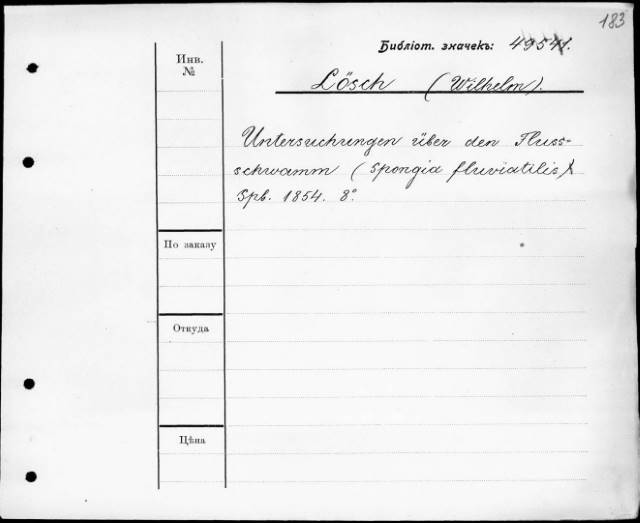 183
Библіот. значекъ: 49541.
Инв.
№
Lösch (Wilhelm).
Untersuchungen über den Fluss-
schwamm (Spongia fluviatilis).
Spb. 1854. 8°.
По заказу
Откуда
Цѣна